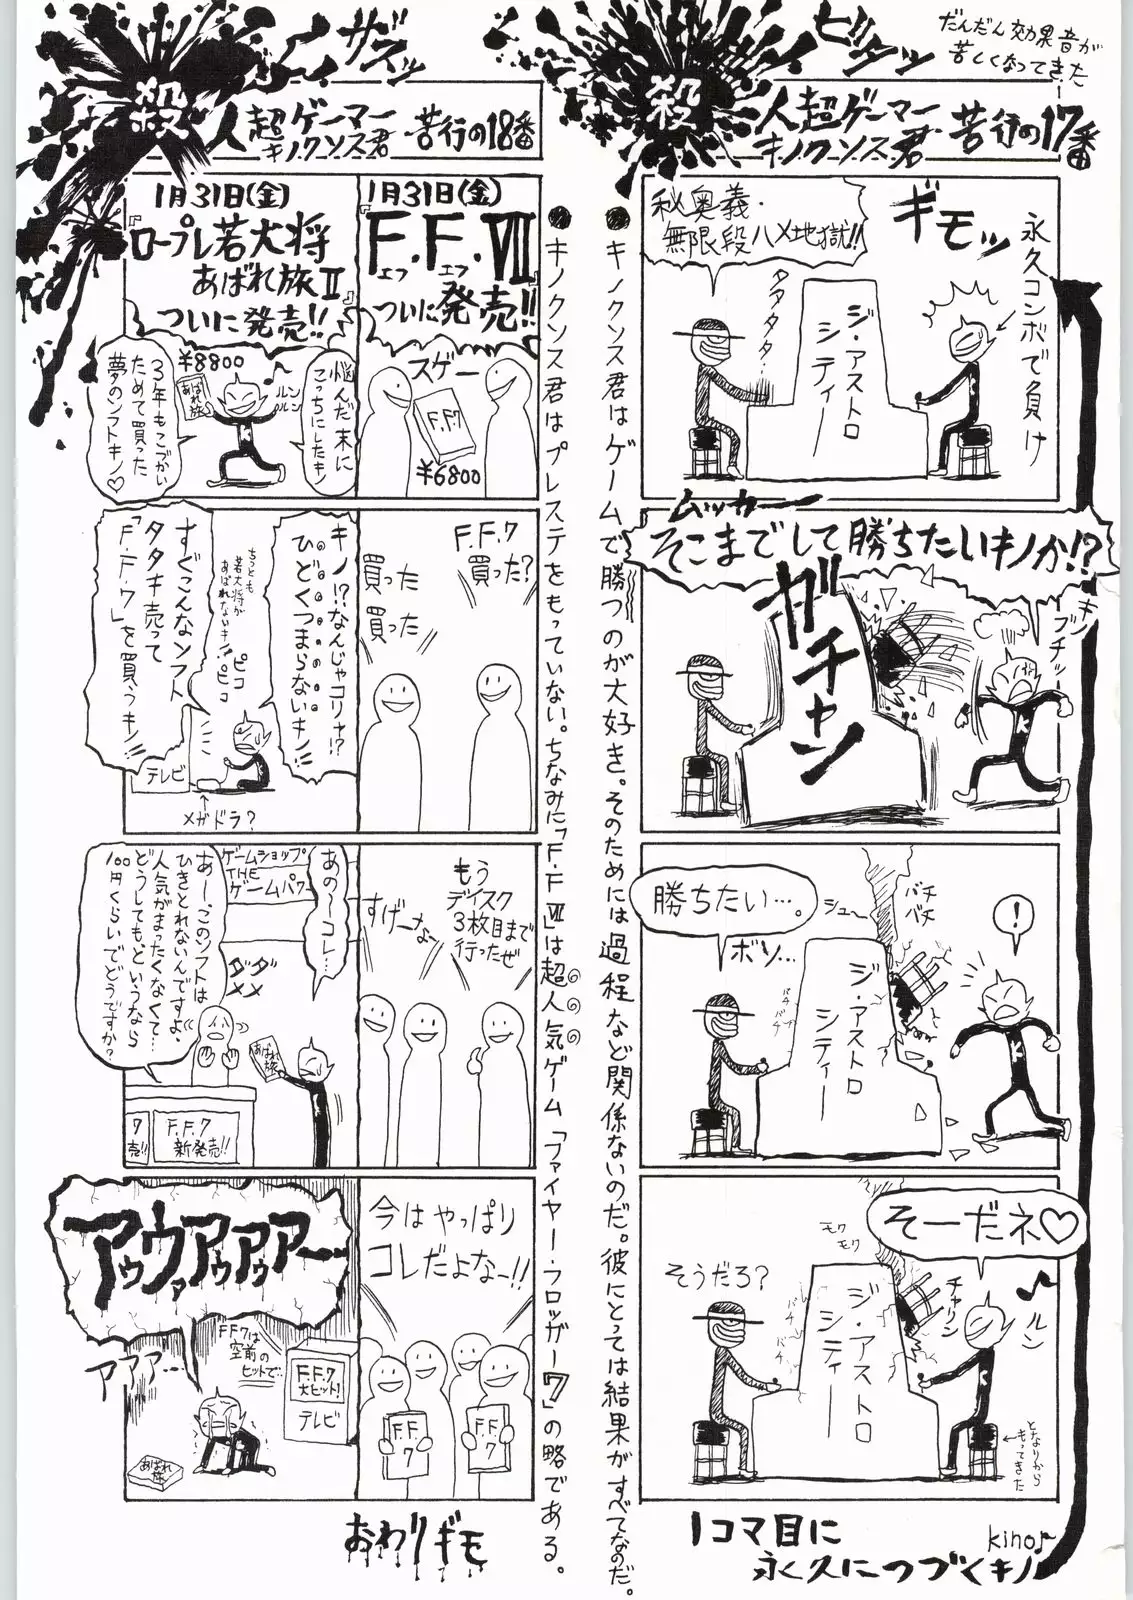 だんだん効果音が
苦しくなってきた
ピタッ
殺
人超ゲーマー
キノクソス君
苦行の17番
秘奥義・
無限段ハメ地獄!!
ギモッ
永久コンボで負け
タタタタ…
ジ・アストロ
シティー
ムッカー
そこまでして勝ちたいキノか!?
キノ
ブチッ
ガチャン
勝ちたい…。
ボソ…
シュ〜
バチ
バチ
!
バチ
バチ
ジ・アストロ
シティー
そーだネ♡
モク
モク
そうだろ?
チャリン
ルン
バチ
バチ
ジ・アストロ
シティー
となりから
もってきた
1コマ目に
永久につづくキノ
kino♪
●キノクソス君はゲームで勝つのが大好き。そのためには過程など関係ないのだ。彼にとっては結果がすべてなのだ。
ザスッ
殺
人超ゲーマー
キノクソス君
苦行の18番
1月31日(金)
『F.F.Ⅶ』
エフ エフ
ついに発売!!
スゲー
F.F.7
¥6800
1月31日(金)
『ロープレ若大将
あばれ旅Ⅱ』
ついに発売!!
¥8800
あばれ
旅
ルン
ルン
悩んだ末に
こっちにしたキノ
3年もこづかい
ためて買った
夢のソフトキノ♡
F.F.7
買った?
買った
買った
キノ!?なんじゃコリャ!?
ひどくつまらないキノ!!
ちっとも
若大将が
あばれないキノ!!
ピコ
ピコ
すぐこんなソフト
タタキ売って
「F.F.7」を買うキノ!!
テレビ
メガドラ?
もう
ディスク
3枚目まで
行ったぜ
すげーなー
ゲームショップ
THE
ゲームパワー
あの〜コレ…
ダダ
メメ
あー、このソフトは
ひきとれないんですよ、
人気がまったくなくて…
どうしても、というなら
100円くらいでどうですか?
あばれ
旅
F.F.7
新発売!!
7
売!!
今はやっぱり
コレだよなー!!
F.F.
7
F.F.
7
アゥウァアゥアゥアー
アアアー…
FF7は
空前の
ヒットで…
F.F.7
大ヒット!
テレビ
あばれ
旅
おわりギモ
●キノクソス君はプレステをもっていない。ちなみに「F.F.Ⅶ」は超人気ゲーム「ファイヤー・フロッガー7」の略である。